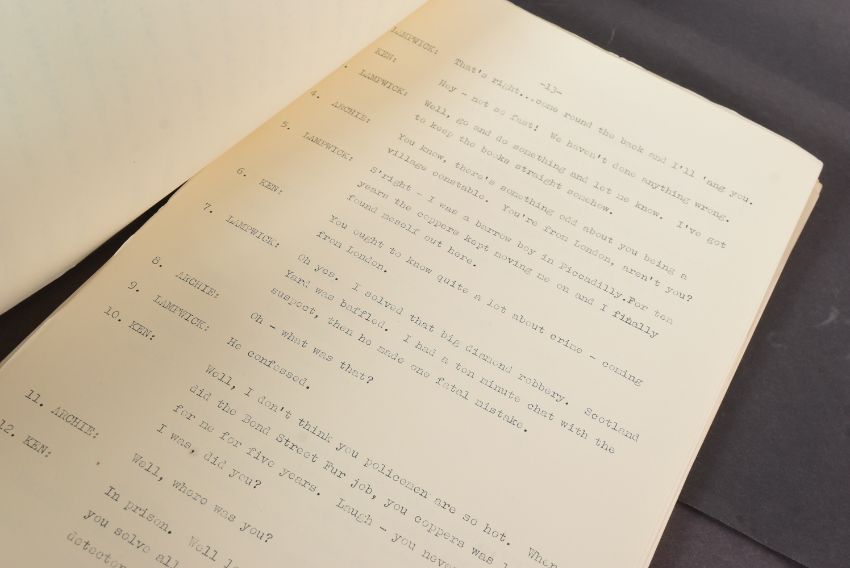 -13-
LAMPWICK: That's right...come round the back and I'll 'ang you.
KEN: Hey - not so fast! We haven't done anything wrong.
LAMPWICK: Well, go and do something and let me know. I've got
to keep the books straight somehow.
4. ARCHIE: You know, there's something odd about you being a
village constable. You're from London, aren't you?
5. LAMPWICK: S'right - I was a barrow boy in Piccadilly.For ten
years the coppers kept moving me on and I finally
found meself out here.
6. KEN: You ought to know quite a lot about crime - coming
from London.
7. LAMPWICK: Oh yes. I solved that big diamond robbery. Scotland
Yard was baffled. I had a ten minute chat with the
suspect, then he made one fatal mistake.
8. ARCHIE: Oh - what was that?
9. LAMPWICK: He confessed.
10. KEN: Well, I don't think you policemen are so hot. When
did the Bond Street Fur job, you coppers was
for me for five years. Laugh - you never
I was, did you?
11. ARCHIE: Well, where was you?
12. KEN: In prison. Well
you solve all
detector